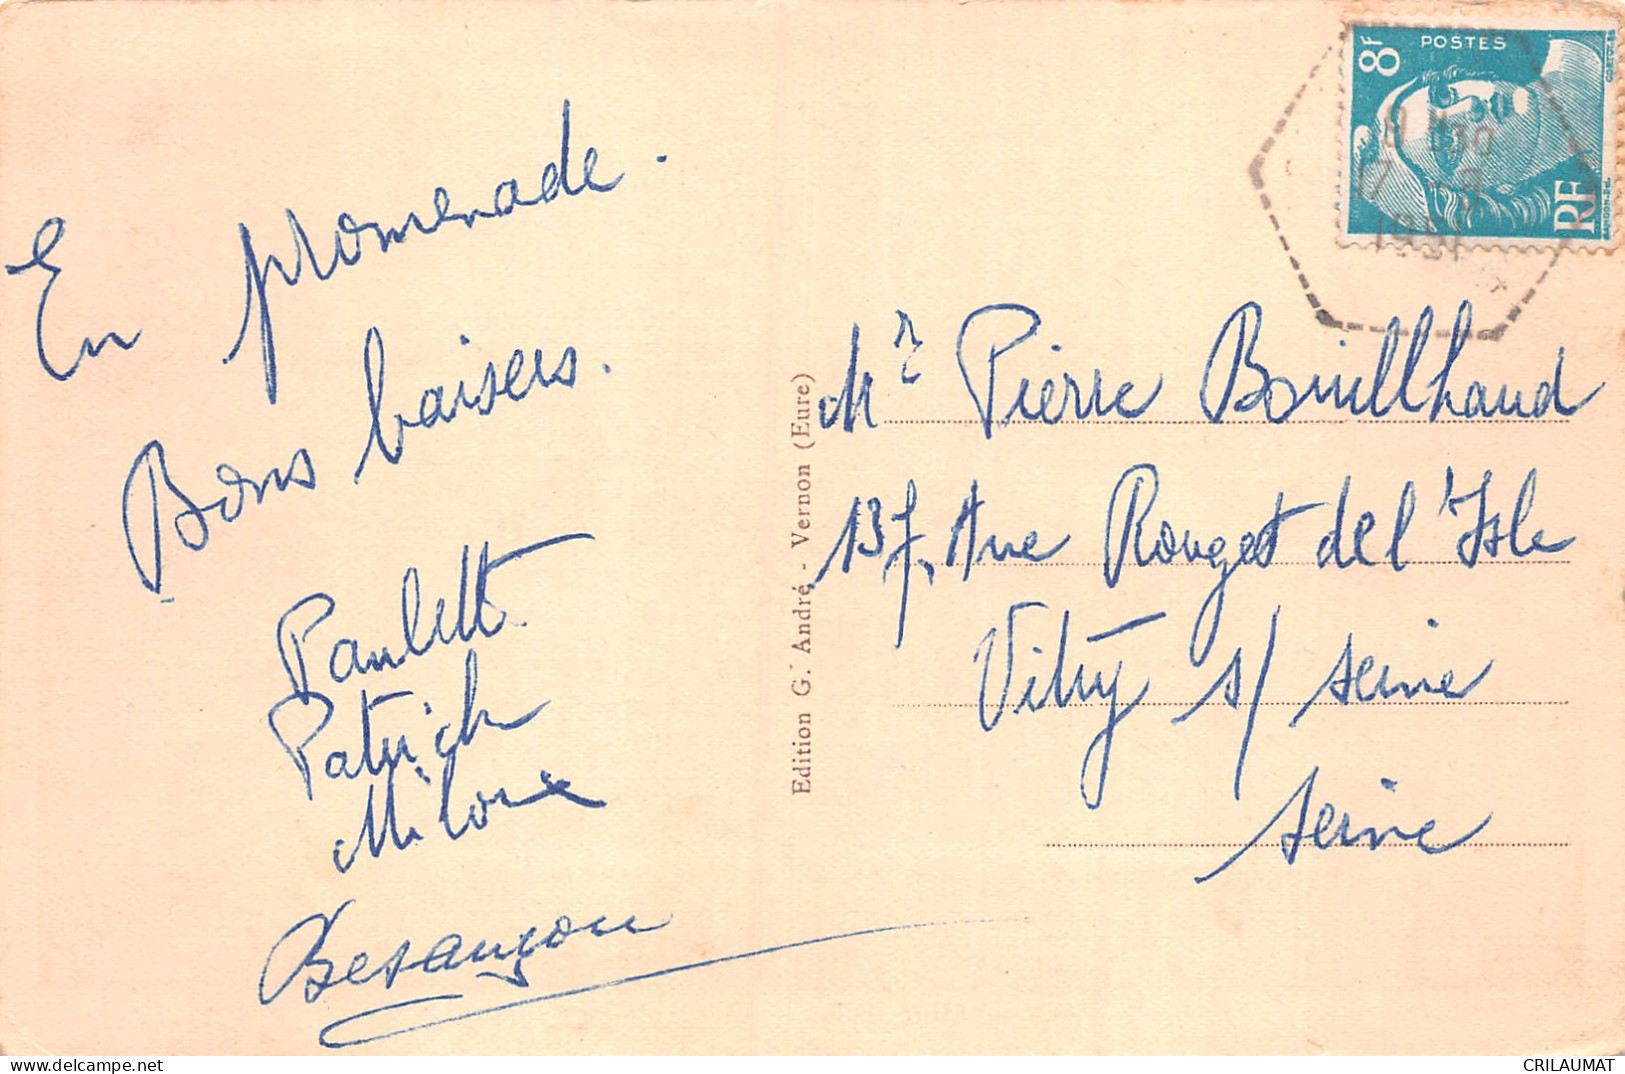 En promenade.
Bons baisers.
Paulette
Patrick
Besançon
Edition G. André - Vernon (Eure)
8F
POSTES
RF
17
1951
Mr Pierre Bouillhaud
137, Rue Rouget de l'Isle
Vitry s/ seine
seine
delcampe.net
CRILAUMAT